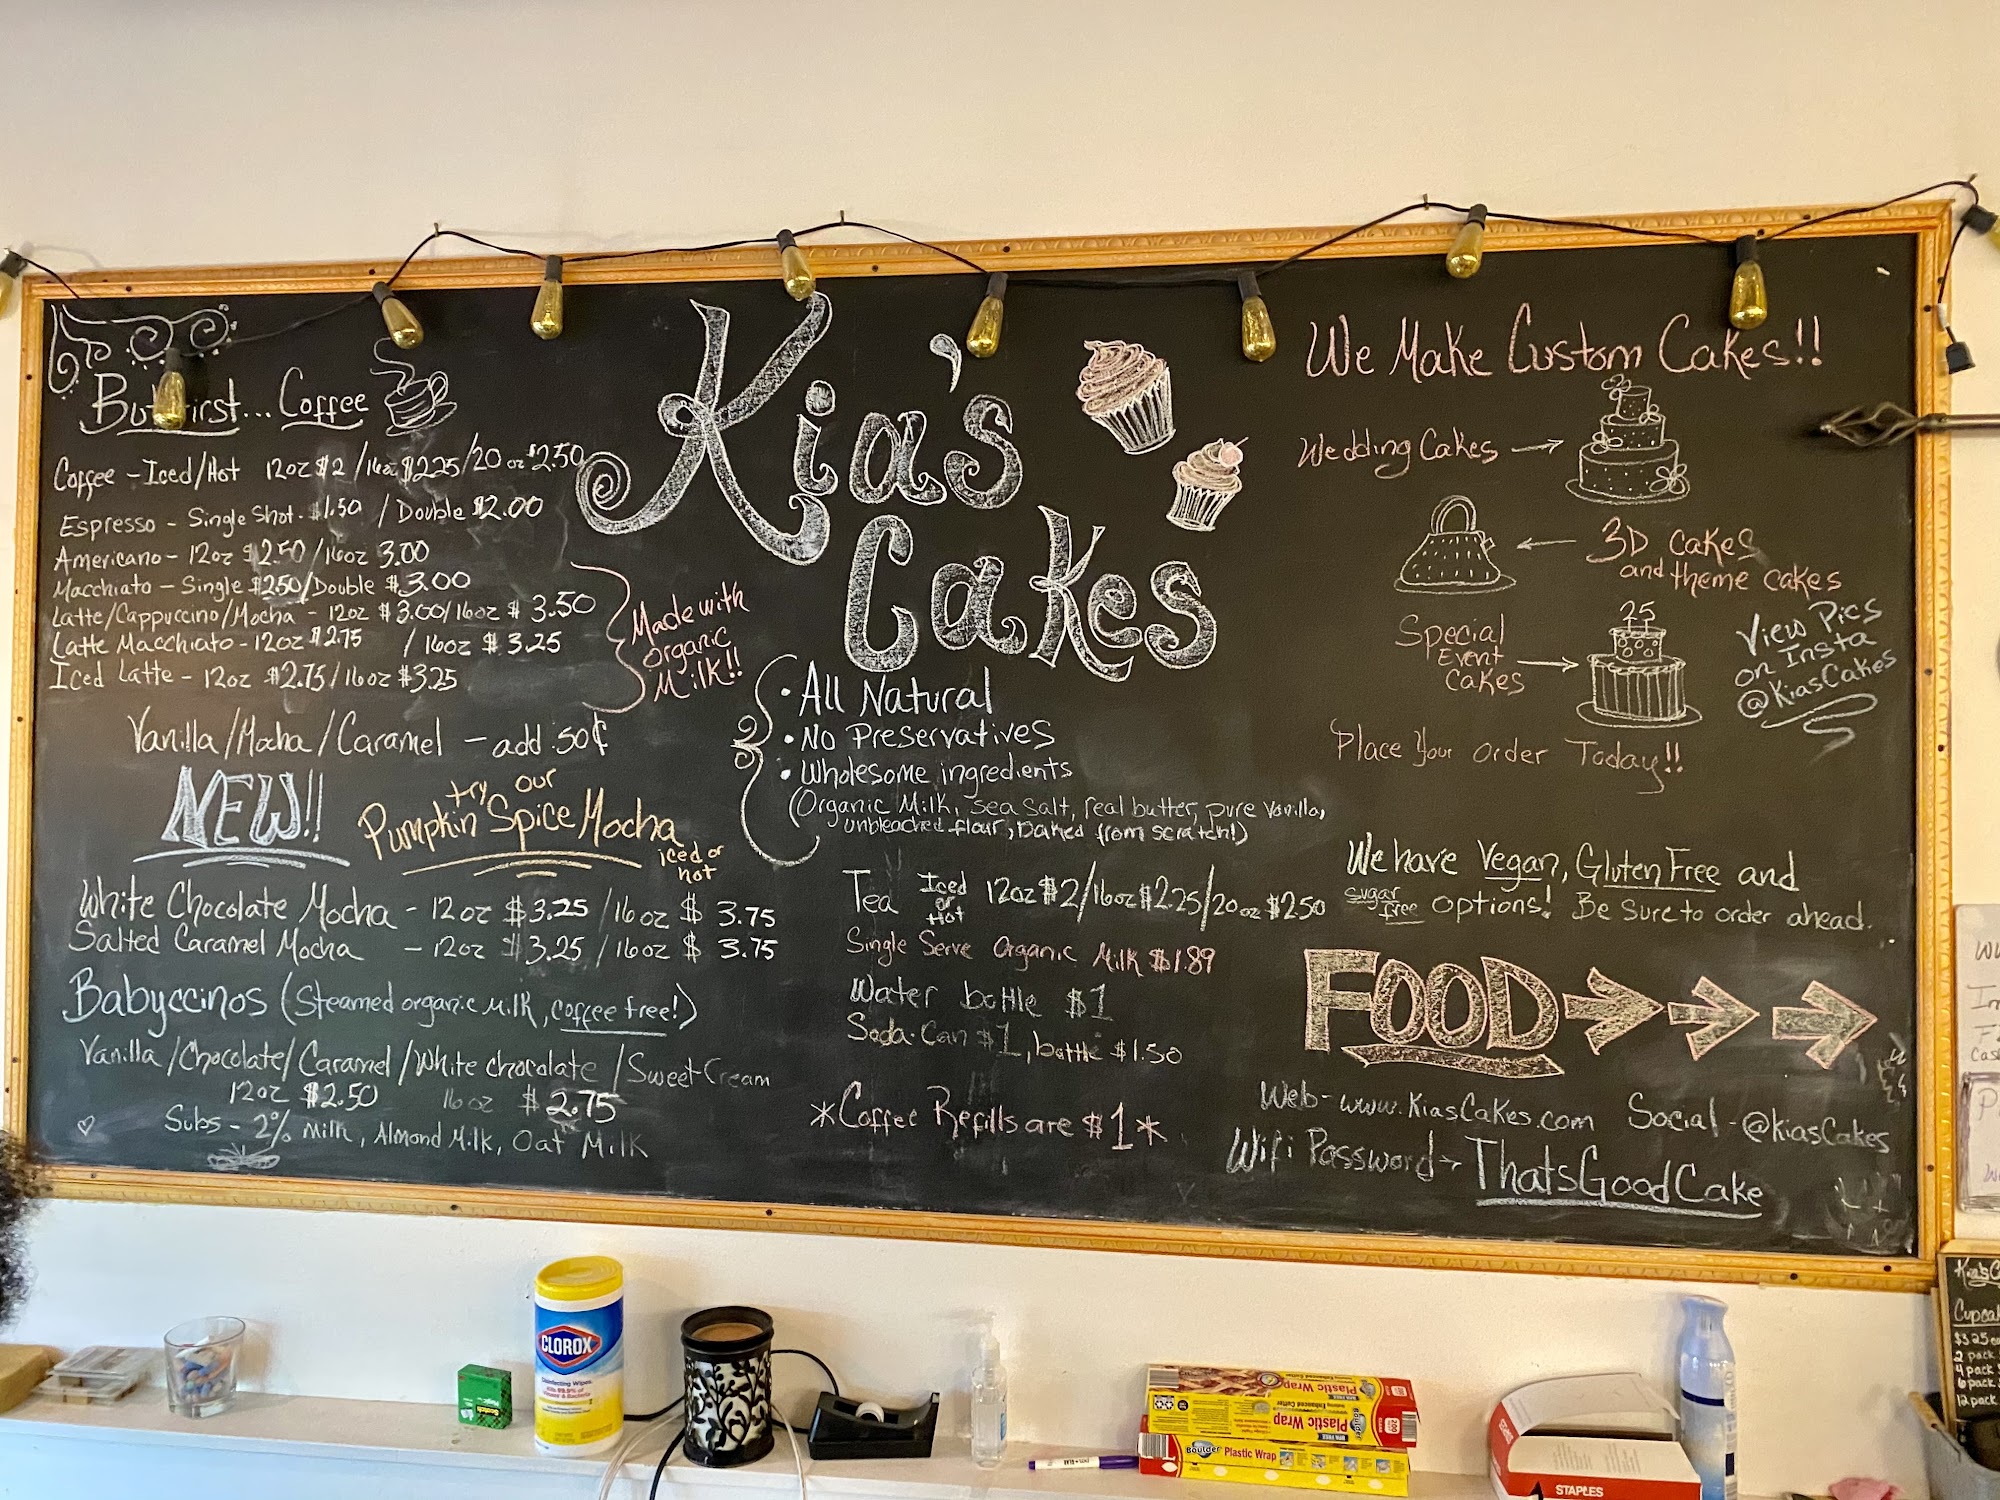 But First... Coffee
Coffee - Iced/Hot 12oz $2 /16oz $2.25/20 oz $2.50
Espresso - Single Shot - $1.50 / Double $2.00
Americano - 12oz $2.50/16oz 3.00
Macchiato - Single $2.50/Double $3.00
Latte/Cappuccino/Mocha - 12oz $3.00/16oz $3.50
Latte Macchiato - 12oz $2.75 / 16oz $3.25
Iced Latte - 12oz $2.75/16oz $3.25
Made with
organic
Milk!!
Vanilla/Mocha/Caramel - add .50¢
NEW!!
try our
Pumpkin Spice Mocha
iced or
hot
White Chocolate Mocha - 12oz $3.25 /16oz $3.75
Salted Caramel Mocha - 12oz $3.25 /16oz $3.75
Babyccinos (Steamed organic milk, coffee free!)
Vanilla/Chocolate/Caramel/White chocolate/Sweet Cream
12oz $2.50 16oz $2.75
Subs - 2% Milk, Almond Milk, Oat Milk
Kia's
Cakes
• All Natural
• No Preservatives
• Wholesome ingredients
(Organic Milk, sea salt, real butter, pure vanilla,
unbleached flour, baked from scratch!)
Tea Iced or Hot 12oz $2/16oz $2.25/20oz $2.50
Single Serve Organic Milk $1.89
Water bottle $1
Soda-Can $1, bottle $1.50
*Coffee Refills are $1*
We Make Custom Cakes!!
Wedding Cakes
3D cakes
and theme cakes
Special
Event
cakes
25
View Pics
on Insta
@KiasCakes
Place Your order Today!!
We have Vegan, Gluten Free and
sugar free options! Be Sure to order ahead.
FOOD
Web - www.KiasCakes.com Social - @kiasCakes
Wifi Password → ThatsGoodCake
Kia's C
Cupcak
$3.25 ea
2 pack
4 pack
6 pack
12 pack
CLOROX
Disinfecting Wipes
Scotch
Plastic Wrap
Plastic Wrap
Boulder Plastic Wrap
STAPLES